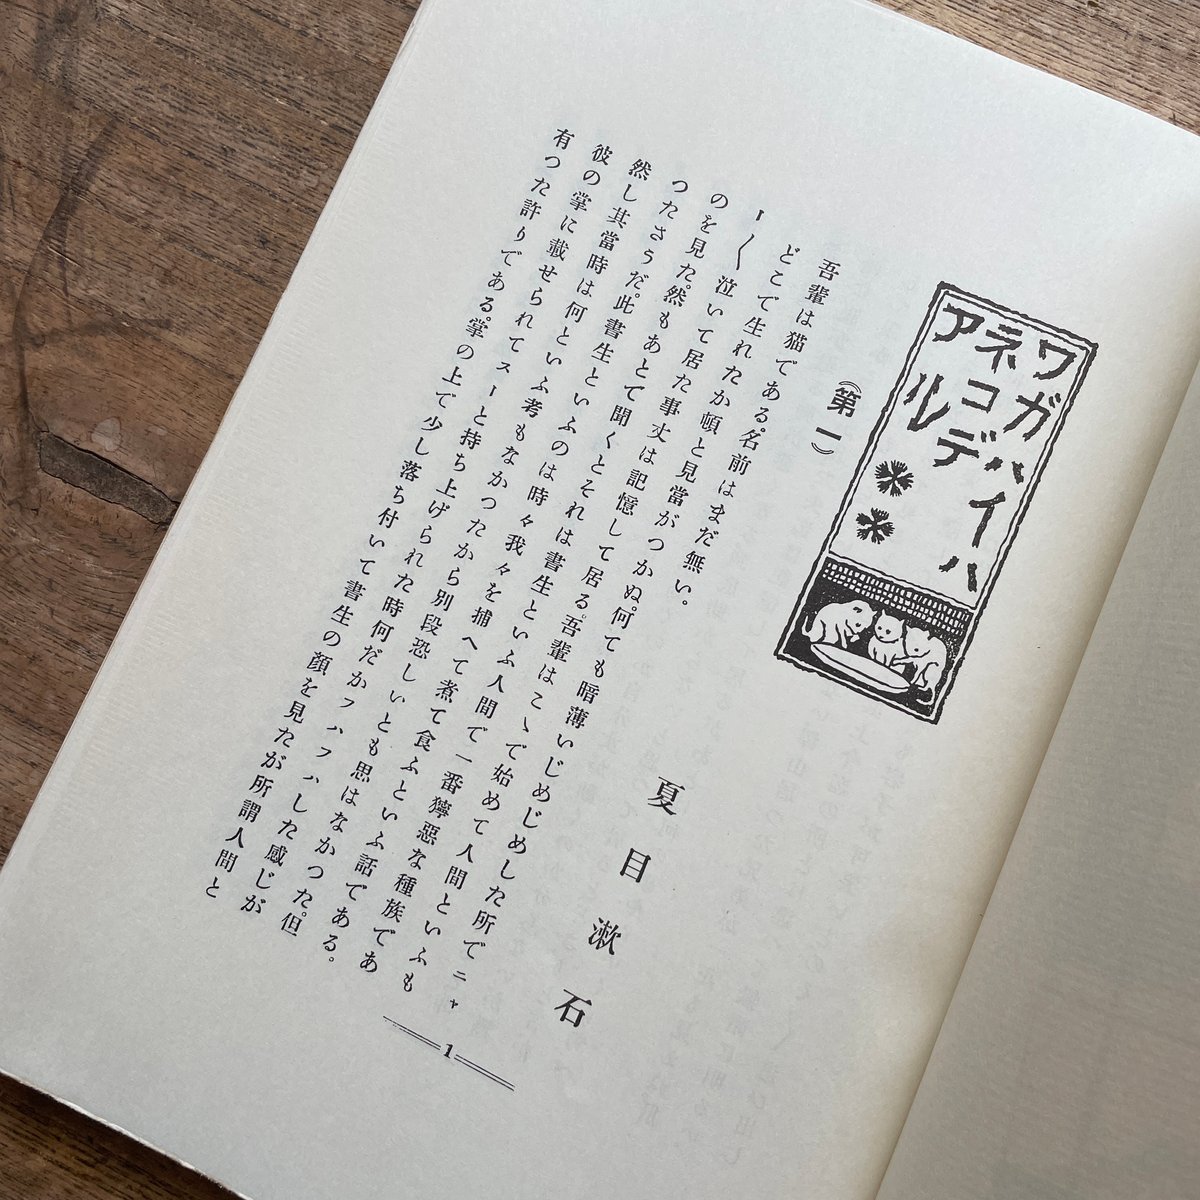 ワガハイハ
ネコデ
アル
(第一)
夏目漱石
吾輩は猫である。名前はまだ無い。
どこで生れたか頓と見當がつかぬ。何ても暗薄いじめじめした所でニャ
ー〱泣いて居た事丈は記憶して居る。吾輩はこゝで始めて人間といふも
のを見た。然もあとて聞くとそれは書生といふ人間で一番獰惡な種族であ
つたさうだ。此書生といふのは時々我々を捕へて煮て食ふといふ話である。
然し其當時は何といふ考もなかつたから別段恐しいとも思はなかつた。但
彼の掌に載せられてスーと持ち上げられた時何だかフハフハした感じが
有つた許りである。掌の上で少し落ち付いて書生の顔を見たが所謂人間と
1